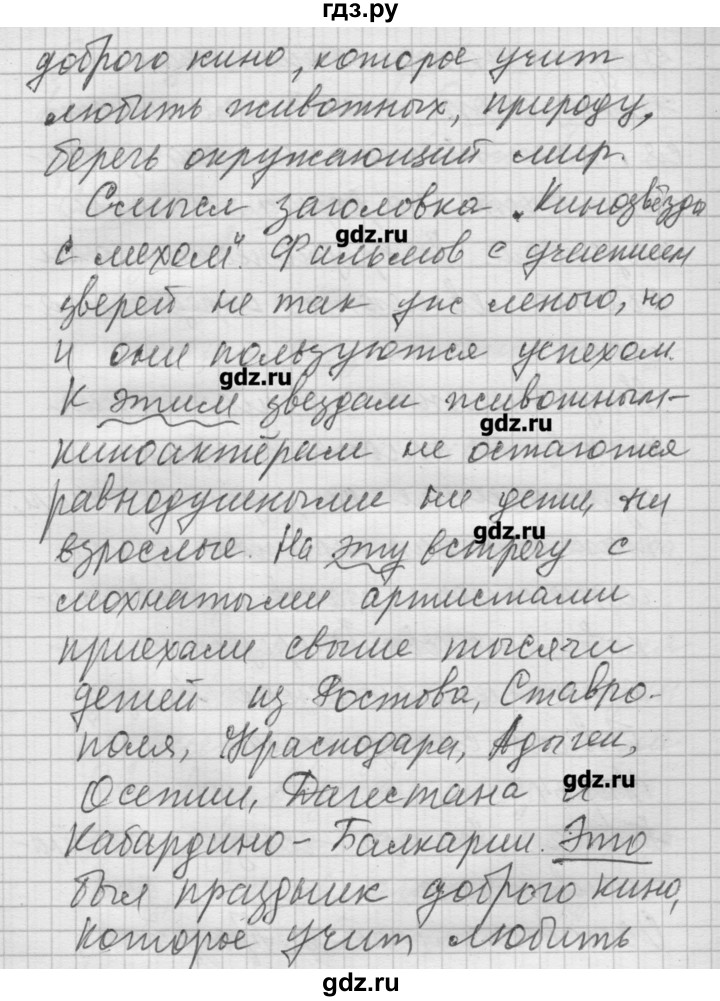 гдз.ру
доброго кино, которое учит
любить животных, природу,
беречь окружающий мир.
Смысл заголовка „Кинозвёзды
с мехом". Фильмов с участием
gdz.ru
зверей не так уж много, но
и они пользуются успехом.
gdz.ru
К этим звездам животным-
gdz.ru
киноактёрам не остаются
равнодушными ни дети, ни
gdz.ru
взрослые. На эту встречу с
мохнатыми артистами
приехали свыше тысячи
детей из Ростова, Ставро-
поля, Краснодара, Адыгеи,
gdz.ru
Осетии, Дагестана и
Кабардино-Балкарии. Это
был праздник доброго кино,
которое учит любить
gdz.ru